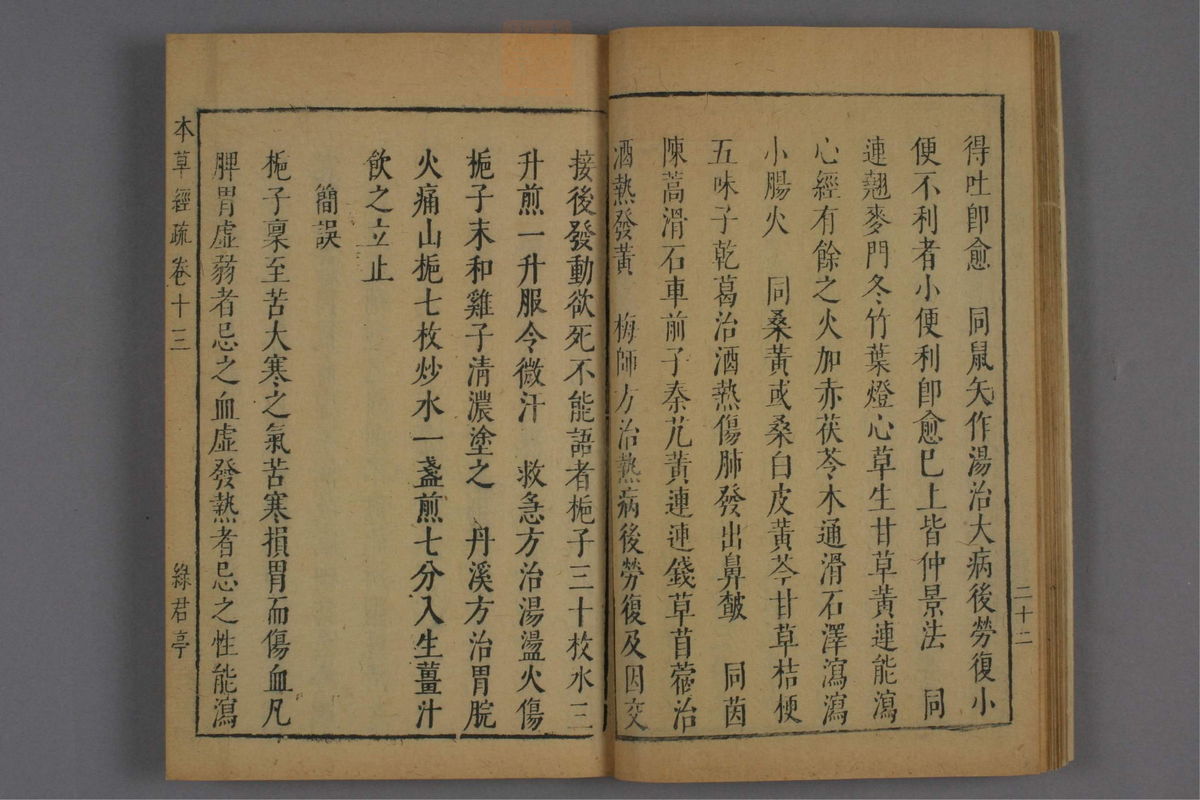 得吐卽愈　同鼠矢作湯治大病後勞復小
便不利者小便利卽愈已上皆仲景法　同
連翹麥門冬竹葉燈心草生甘草黃連能瀉
心經有餘之火加赤茯苓木通滑石澤瀉瀉
小腸火　同桑黃或桑白皮黃芩甘草桔梗
五味子乾葛治酒熱傷肺發出鼻皶　同茵
陳蒿滑石車前子秦艽黃連連錢草苜蓿治
酒熱發黃　梅師方治熱病後勞復及因交
接後發動欲死不能語者梔子三十枚水三
升煎一升服令微汗　救急方治湯盪火傷
梔子末和雞子清濃塗之　丹溪方治胃脘
火痛山梔七枚炒水一盞煎七分入生薑汁
飲之立止
簡誤
梔子稟至苦大寒之氣苦寒損胃而傷血凡
脾胃虛弱者忌之血虛發熱者忌之性能瀉
本草經疏卷十三　綠君亭
二十二